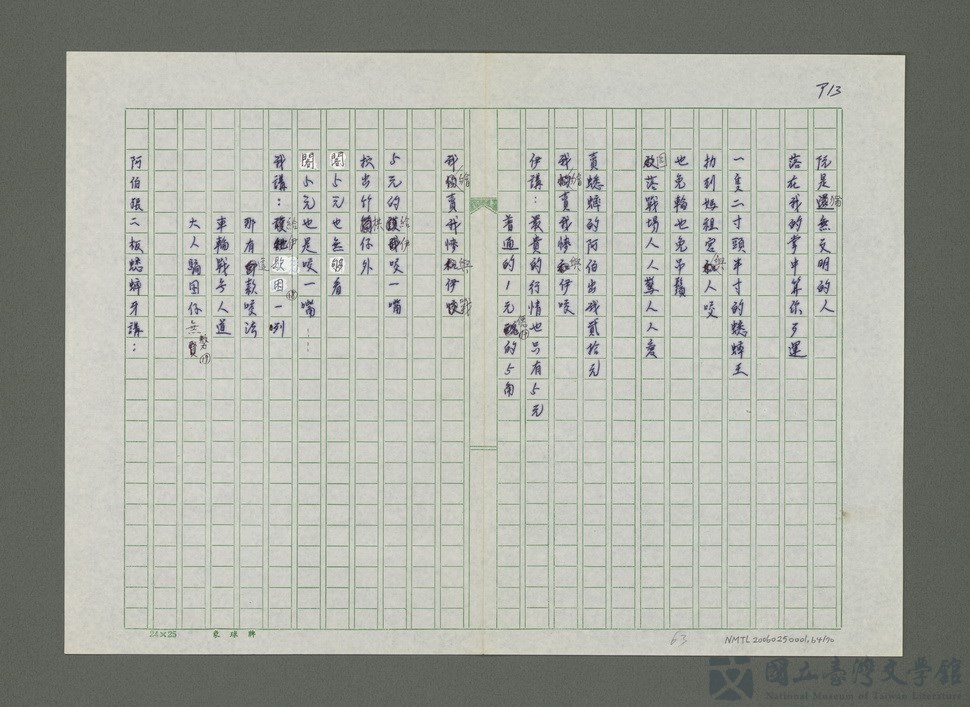 P13
阮是還無文明的人
落在我的掌中算你歹運
一隻二寸頭半寸的蟋蟀王
抐到姑組定與人咬
也免輪也免吊鬚
放落戰場人人驚人人愛
賣蟋蟀的阿伯出我貳拾元
我給賣我悌與伊咬
伊講：最貴的行情也只有5元
普通的1元 的5角
我給賣我悌與伊
5元的給伊咬一嘴
扒出竹 仔外
閣5元也無夠看
閣5元也是咬一嘴……
我講：給伊 欺囡一例
那有這款咬法
車輪戰無人道
大人騙囡仔無
阿伯 二板蟋蟀牙講：
24×25
象球牌
63
NMTL20060250001,64/70
國立臺灣文學館
National Museum of Taiwan Literature